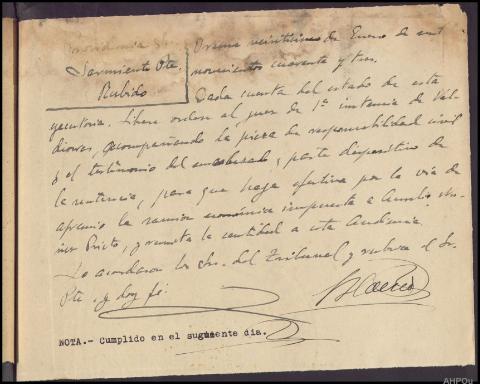 Providencia S.
Sarmiento Pte.
Rubido
Orense veintitres de Enero de mil
novecientos cuarenta y tres.
Dada cuenta del estado de esta
ejecutoria. Librese orden al juez de 1ª instancia de Val-
deorras, acompañando la pieza de responsabilidad civil
y el testimonio del encabezado y parte dispositiva de
la sentencia, para que haga efectiva por la via de
apremio la sancion económica impuesta a Aurelio
Prieto, y remita la cantidad a esta Audiencia
Lo acordaron los Sres. del Tribunal y rubrica el Sr.
Pte. y doy fé.
NOTA.- Cumplido en el suguiente dia.
AHPOu